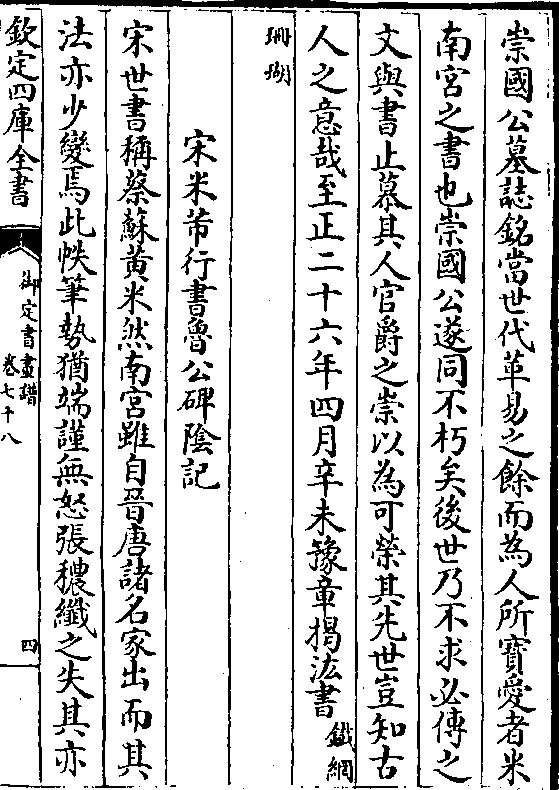 崇國公墓誌銘當世代革易之餘而為人所寶愛者米
南宮之書也崇國公遂同不朽矣後世乃不求必傳之
文與書止慕其人官爵之崇以為可榮其先世豈知古
人之意哉至正二十六年四月辛未豫章揭汯書鐵網
珊瑚
宋米芾行書魯公碑陰記
宋世書稱蔡蘇黃米然南宮雖自晉唐諸名家出而其
法亦少變焉此帙筆勢猶端謹無怒張穠纖之失其亦
欽定四庫全書
御定書畫譜
卷七十八
四